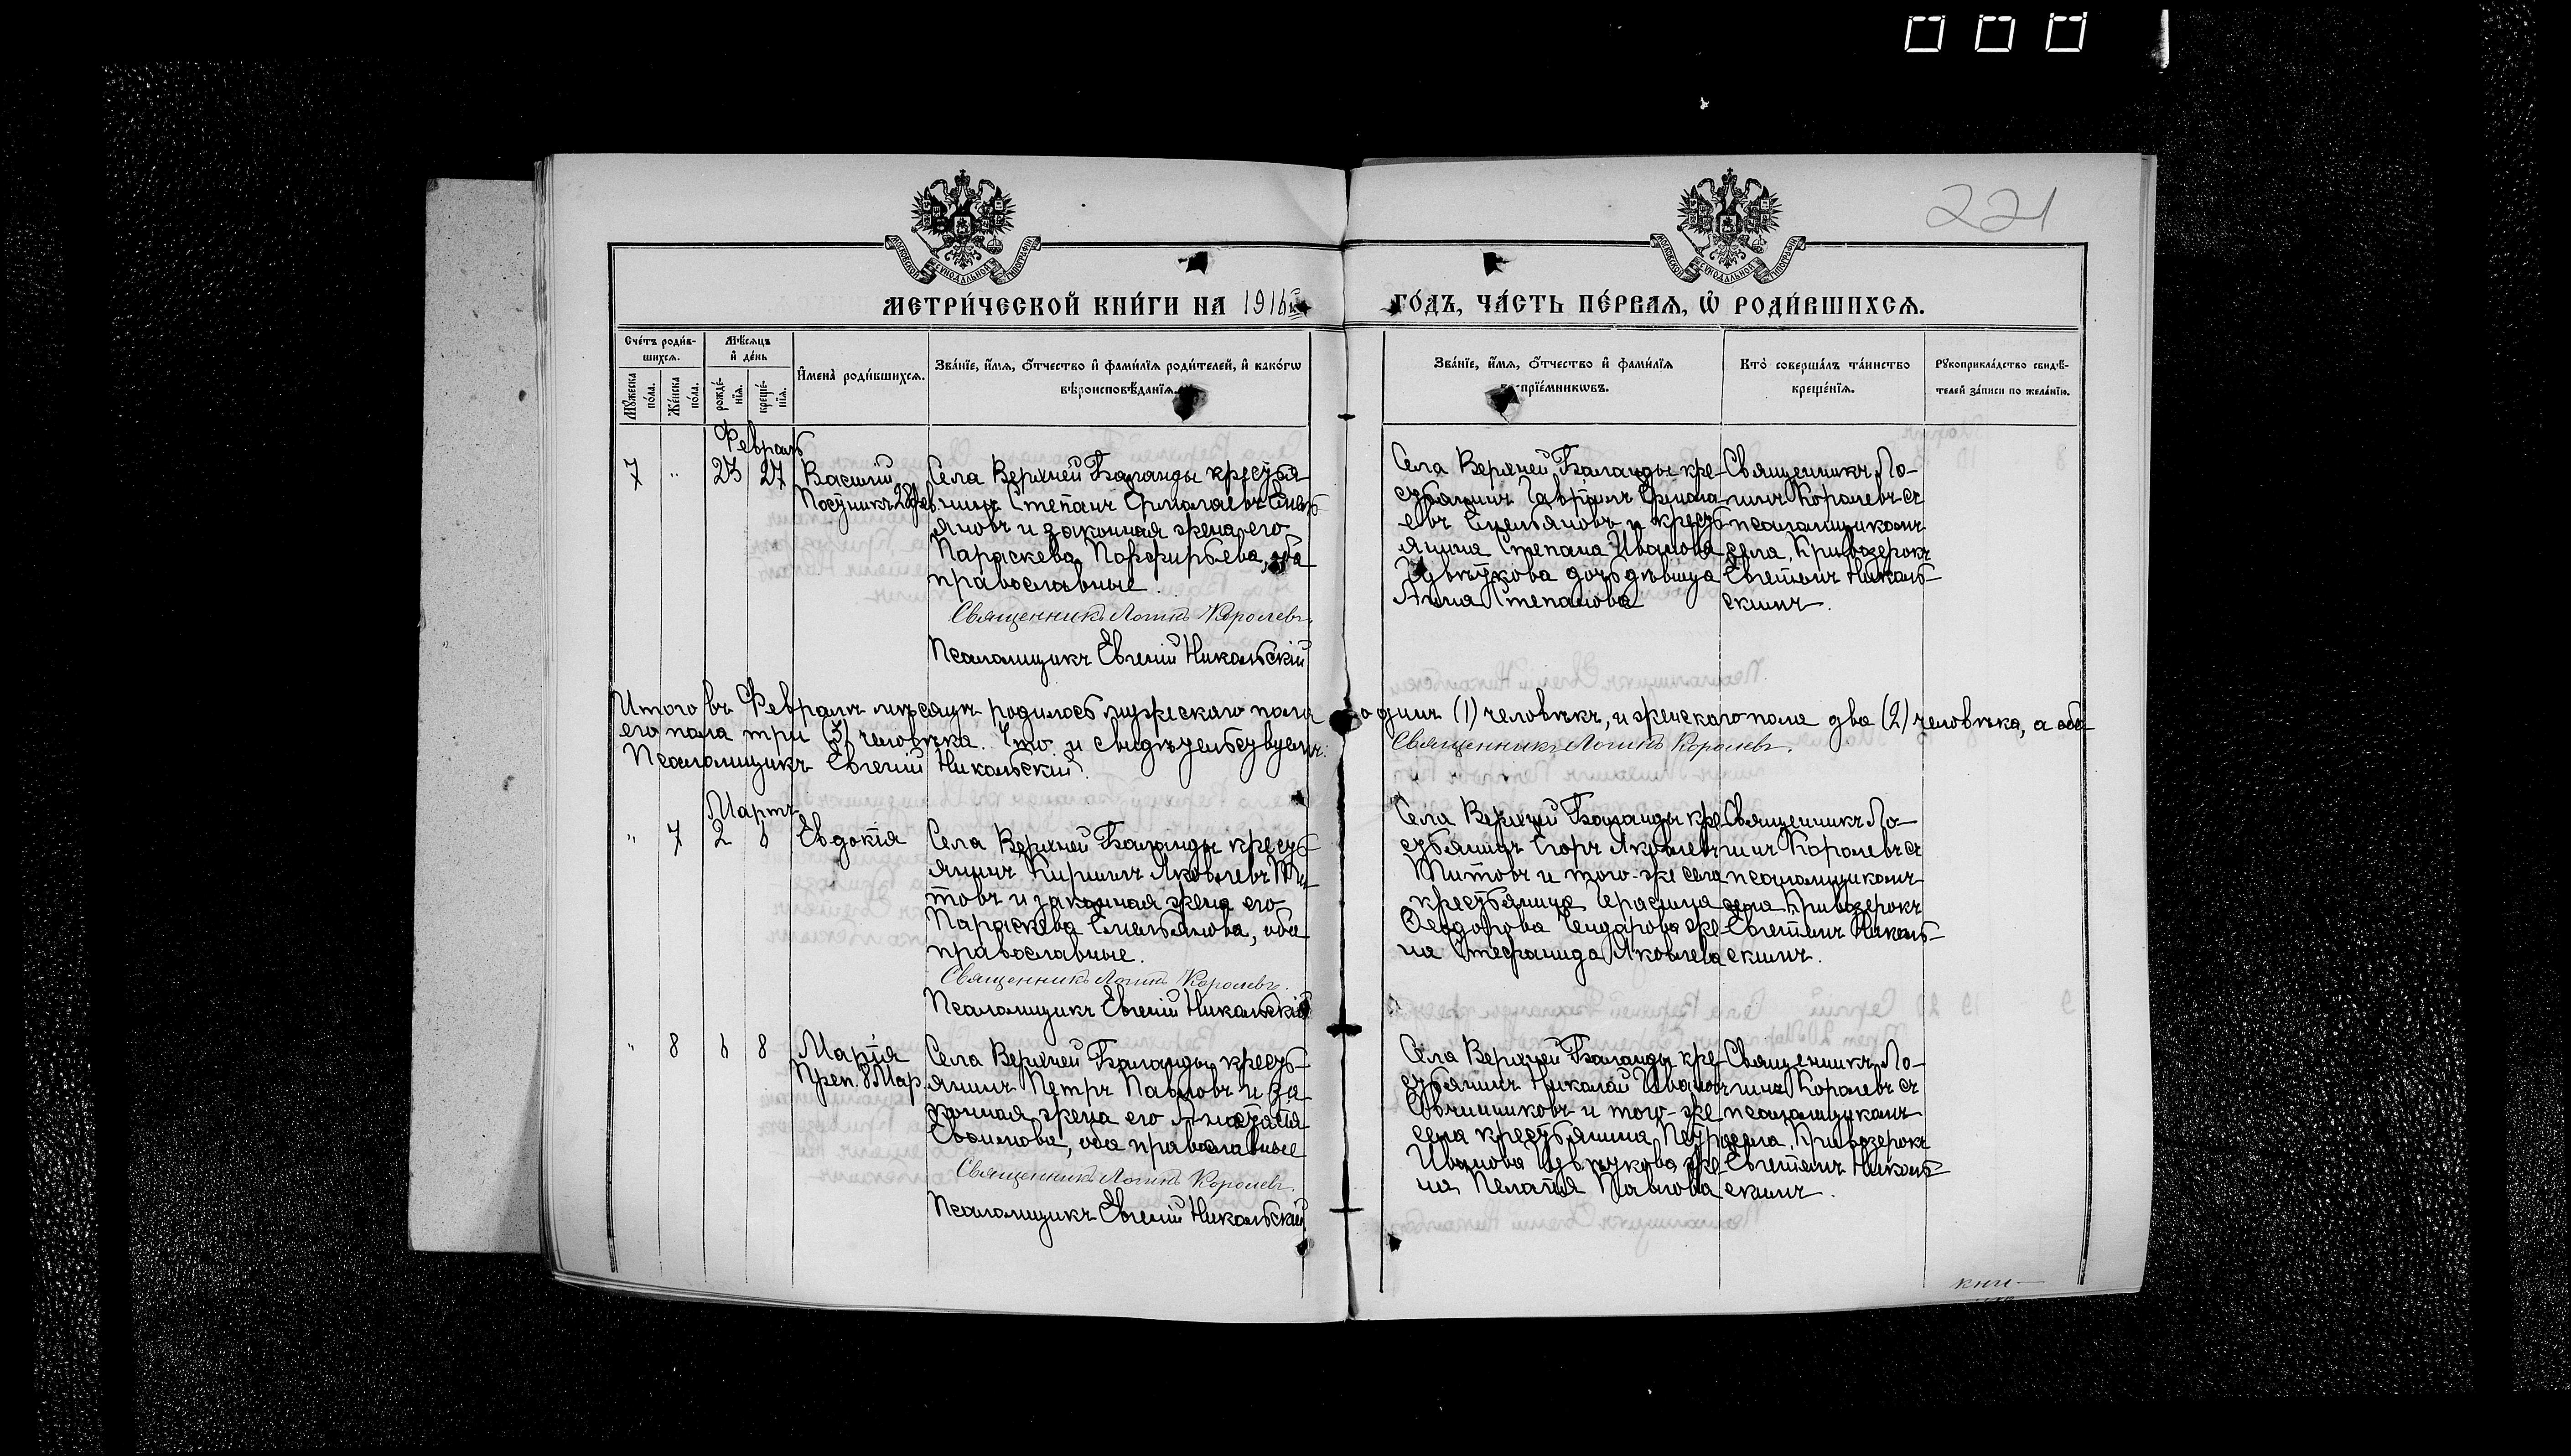 221
МОСКОВСКОЙ СУНОДАЛЬНОЙ ТИПОГРАФІИ
МОСКОВСКОЙ СУНОДАЛЬНОЙ ТИПОГРАФІИ
МЕТРИ́ЧЕСКОЙ КНИ́ГИ НА 1916й
ГО́ДЪ, ЧА́СТЬ ПЕ́РВАЯ, Ѡ҆ РОДИ́ВШИХСЯ.
Сче́тъ роди́в-
шихся.
Мѣ́сяцъ
и҆ де́нь
Мꙋ́жеска по́ла.
Же́нска по́ла.
рожде́-
нїя.
креще́-
нїя.
И҆мена̀ роди́вшихся.
Зва́нїе, и҆́мя, ѻ҆́тчество и҆ фами́лїя роди́телей, и҆ како́гѡ
вѣроисповѣ́данїя.
Зва́нїе, и҆́мя, ѻ҆́тчество и҆ фами́лїя
во-прїе́мникѡвъ.
Кто̀ соверша́лъ та́инство
креще́нїя.
Рꙋкоприкла́дство свидѣ́-
телей за́писи по жела́нїю.
Февраль
7 " 23 27 Василій
Села Верхней Баланды крестья-
нинъ Степанъ Ермолаевъ Емель-
яновъ и законная жена его
Параскева Порфирьева, оба
православные.
Священникъ Логинъ Королевъ.
Псаломщикъ Евгеній Никольскій
Села Верхней Баланды кре-
стьянинъ Гавріилъ Ермола-
евъ Емельяновъ и кресть-
янина Степана Иванова
дочь дѣвица
Анна Степанова
Священникъ Ло-
гинъ Королевъ съ
псаломщикомъ
села Кривозерокъ
Евгеніемъ Николь-
скимъ.
Итого въ Февралѣ мѣсяцѣ родилось мужескаго пола одинъ (1) человѣкъ, и женскаго пола два (2) человѣка, а обо-
его пола три (3) человѣка. Что и свидѣтельствуемъ: Священникъ Логинъ Королевъ.
Псаломщикъ Евгеній Никольскій.
Мартъ
" 7 2 6 Евдокія
Села Верхней Баланды кресть-
янинъ Кириллъ Яковлевъ Ти-
товъ и законная жена его
Параскева Емельянова, оба
православные.
Священникъ Логинъ Королевъ.
Псаломщикъ Евгеній Никольскій
Села Верхней Баланды кре-
стьянинъ Егоръ Яковлевъ
Титовъ и того-же села
крестьянина Герасима
Ѳеодорова же-
на Стефанида Яковлева
Священникъ Ло-
гинъ Королевъ съ
псаломщикомъ
села Кривозерокъ
Евгеніемъ Николь-
скимъ.
" 8 6 8 Марія
Преп. 8 Мар.
Села Верхней Баланды кресть-
янинъ Петръ Павловъ и за-
конная жена его Анастасія
Евѳимова, оба православные
Священникъ Логинъ Королевъ.
Псаломщикъ Евгеній Никольскій.
Села Верхней Баланды кре-
стьянинъ Николай Ивановъ
Овчинниковъ и того-же
села крестьянина Петра
Иванова же-
на Пелагія Павлова
Священникъ Ло-
гинъ Королевъ съ
псаломщикомъ
села Кривозерокъ
Евгеніемъ Николь-
скимъ.
кни-